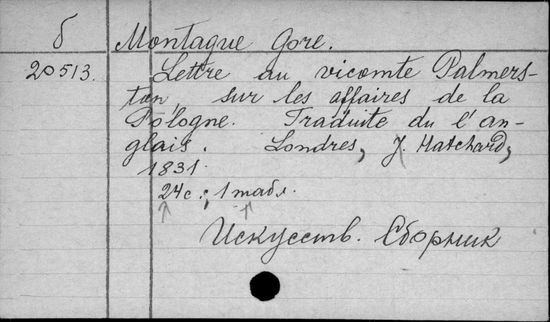 б Montague Gore.
20513. Lettre au vicomte Palmers-
ton, sur les affaires de la
Pologne. Traduite du l'an-
glais. Londres, J. Hatchard,
1831.
24 с.; 1 табл.
Искусств. Сборник